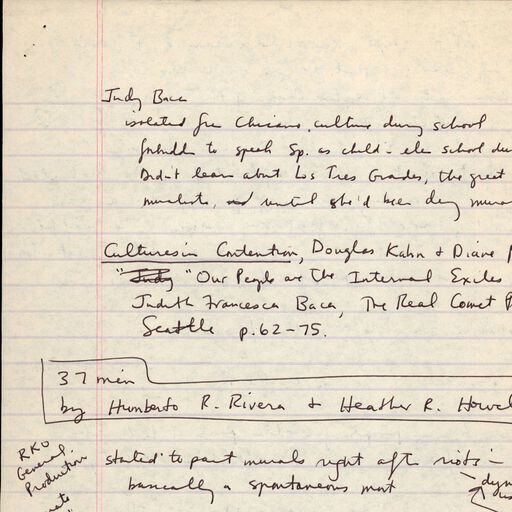 Judy Baca
isolated fr Chicano culture during school
forbidden to speak Sp. as child - elem school du
Didn't learn about Los Tres Grades, the great
muralists, until she'd been doing mura
Cultures in Contention, Douglas Kahn & Diane
" Judy "Our People are the Internal Exiles
Judith Francesca Baca, The Real Comet P
Seattle p. 62-75.
37 min
by Humberto R. Rivera & Heather R. Howel
RKO
General
Production
started to paint murals right after riots -
basically a spontaneous mvt